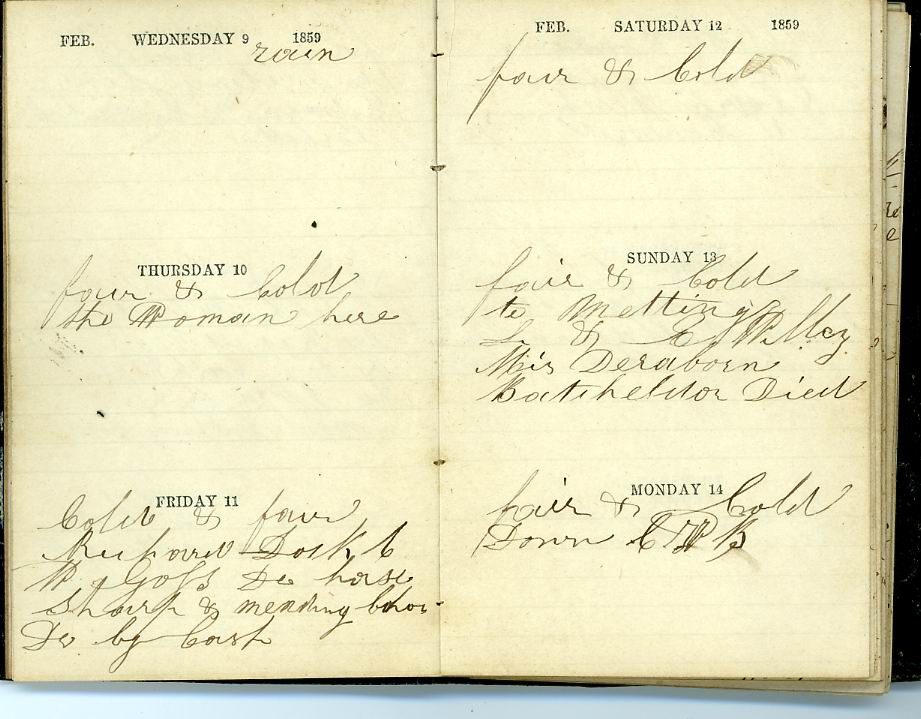 FEB. WEDNESDAY 9 1859
rain
THURSDAY 10
fair & Cold
the Woman here
FRIDAY 11
Cold & fair
Richard Dost
W Goss Do horse
Sharp & mending
Do by Cash
FEB. SATURDAY 12 1859
fair & Cold
SUNDAY 13
fair & Cold
to Metting
S & E Willey
Mis Deraborn
Batcheldor Died
MONDAY 14
fair & Cold
Down C W B